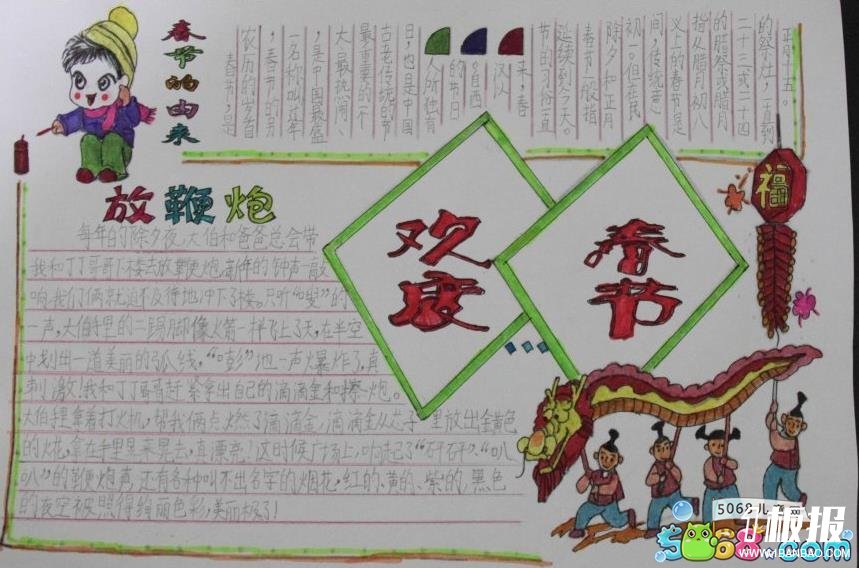 春节的由来
春节,是
农历的岁首
,春节的另
一名称叫过年
,是中国最盛
大、最热闹、
最重要的一个
古老传统的节
日,也是中国
人所独有
的节日
。自西
汉以
来,春
节的习俗一直
延续到今天。
春节一般指
除夕和正月
初一。但在民
间,传统意
义上的春节是
指从腊月初八
的腊祭或腊月
二十三或二十四
的祭灶,一直到
正月十五。
放鞭炮
每年的除夕夜,大伯和爸爸总会带
我和丁丁哥哥下楼去放鞭炮。新年的钟声一敲
响,我们俩就迫不及待地冲下了楼。只听“嗖”的
一声,大伯手里的二踢脚像火箭一样飞上了天,在半空
中划出一道美丽的弧线,“嘭”地一声爆炸了,真
刺激!我和丁丁哥哥赶紧拿出自己的滴滴金和擦炮。
大伯手里拿着打火机,帮我俩点燃了滴滴金,滴滴金从芯子里放出金黄色
的火花,拿在手里晃来晃去,真漂亮!这时候广场上,响起了“砰砰”“叭
叭”的鞭炮声,还有各种叫不出名字的烟花,红的、黄的、紫的,黑色
的夜空被照得绚丽色彩,美丽极了!
欢度
春节
福
5068儿童网
板报
WWW.41BANBAO.COM
5068.com